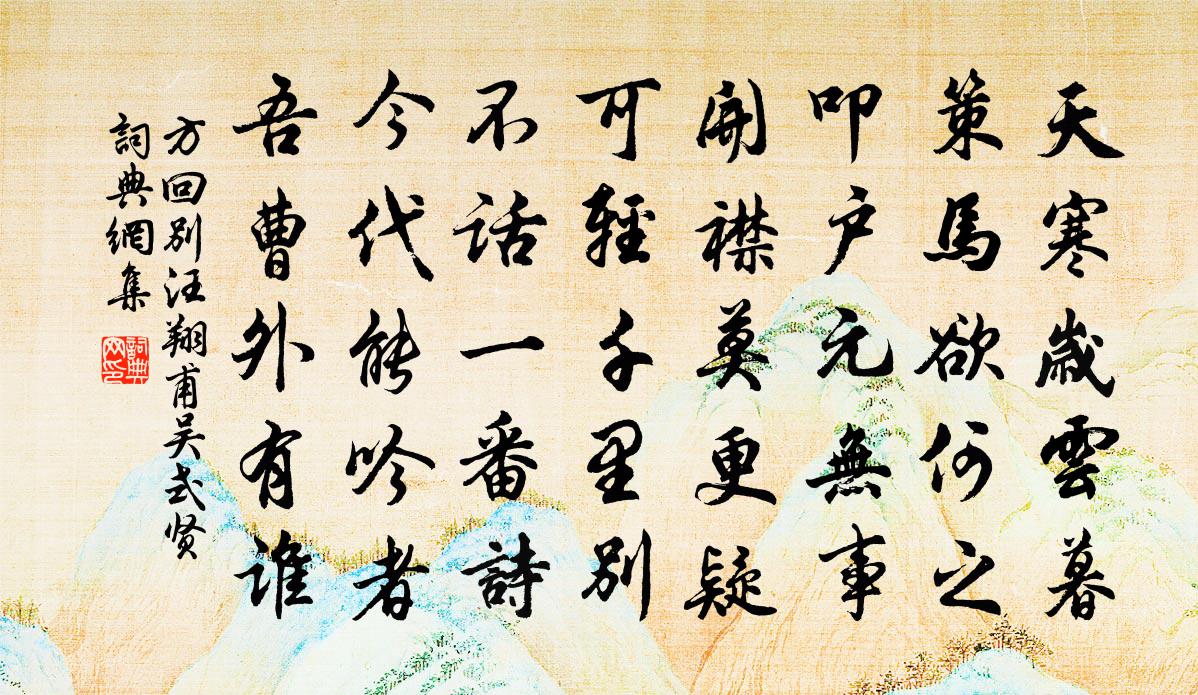 天寒歲雲暮
策馬欲何之
叩戶元無事
開襟莫更疑
可輕千里別
不話一番詩
今代能吟者
吾曹外有誰
方回別汪翔甫吴式贤
詞典網集